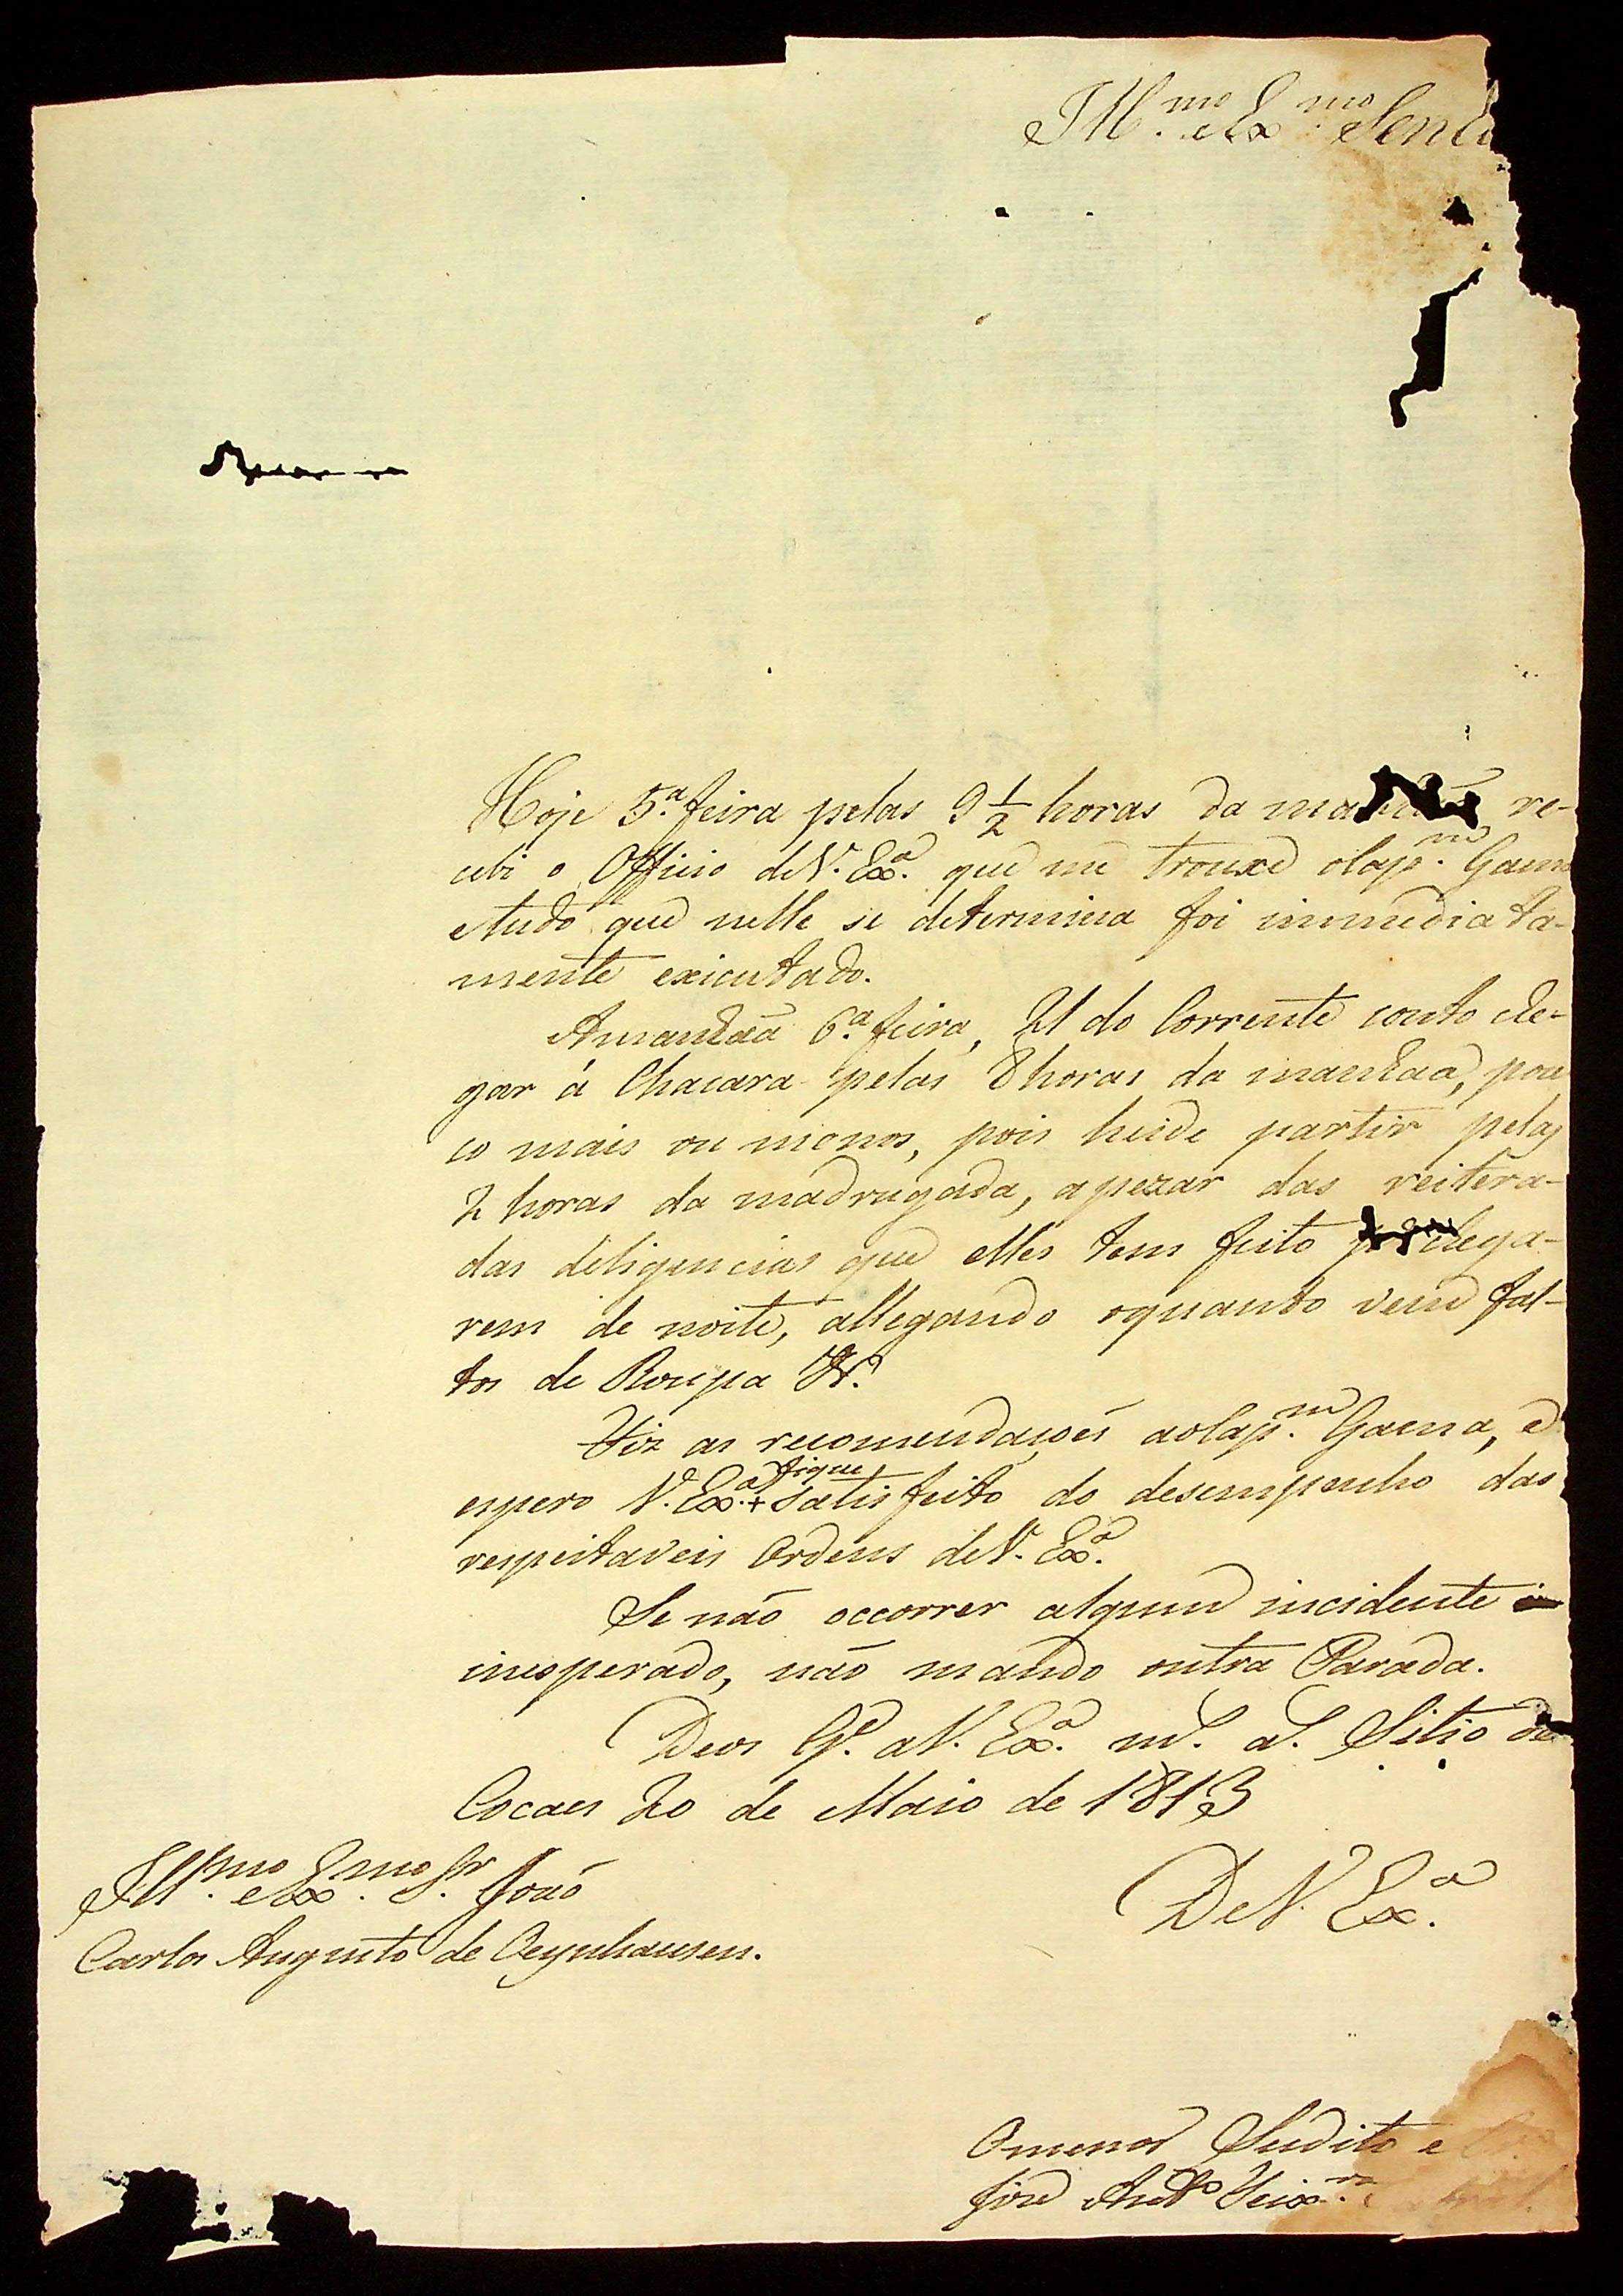 Ill.mo e Ex.mo Senh
Hoje 5.a feira pelas 9 1/2 horas da manhãa re-
cebi o Officio de V. Ex.a que me trouxe o Cap.m Gama
e tudo que nelle se determina foi immediata-
mente executado.
Amanhãa 6.a feira, 21 do Corrente conto che-
gar á Chacara pelas 8 horas da manhaã, pou
co mais ou menos, pois heide partir pelas
2 horas da madrugada, apezar das reitera-
das diligencias que elles tem feito p.a chega-
rem de noite, allegando o quanto vem fal-
tos de Roupa &.a
Fiz as recomendaçoẽs ao Cap.m Gama, e
espero V. Ex.a + fique satisfeito do desempenho das
respeitaveis Ordens de V. Ex.a
Se não occorrer algum incidente
inesperado, não mando outra Parada.
Deos G.e a V. Ex.a m.s a.s Sitio de
Cocaes 20 de Maio de 1813
Ill.mo e Ex.mo Sr. João
Carlos Augusto de Oeynhausen.
De V. Ex.a
O menor Sudito e
Joze Ant.o